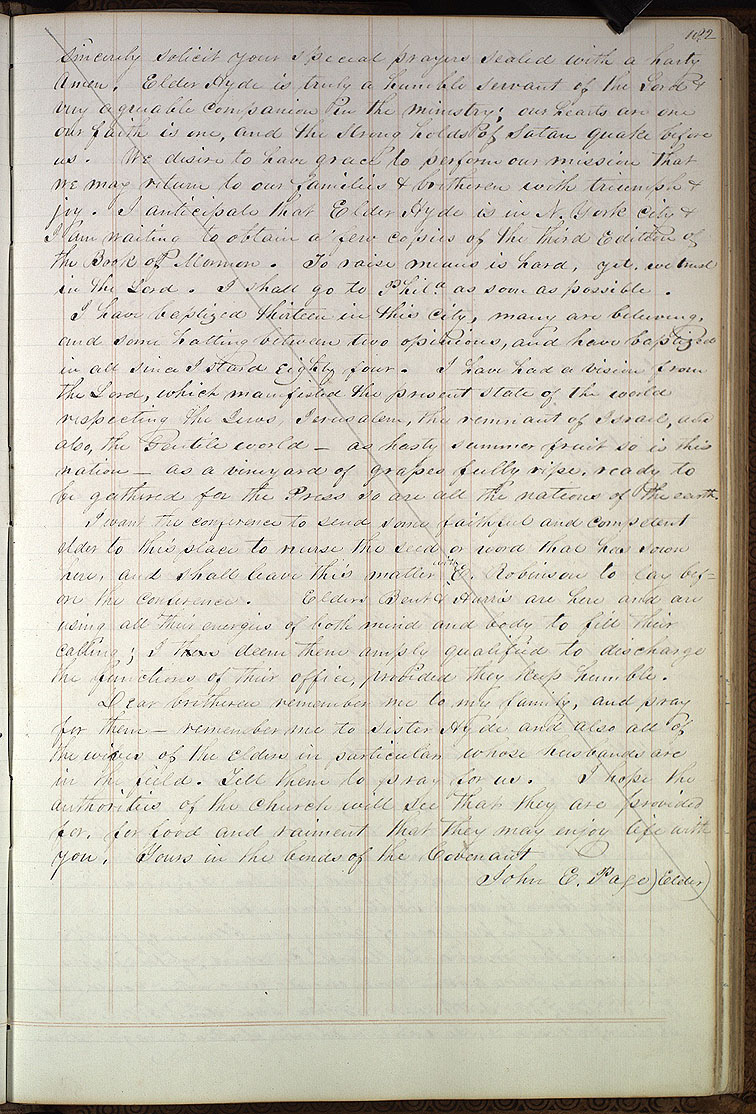 182
sincerely solicit your special prayers sealed with a harty
Amen. Elder Hyde is truly a humble servant of the Lord &
very agreeable companion in the ministry; our hearts are one
our faith is one, and the strong holds of Satan quake before
us. We desire to have grace to perform our mission that
we may return to our families & bretheren with triumph &
joy. I anticipate that Elder Hyde is in N. York city &
I am waiting to obtain a few copies of the third Edition of
the Book of Mormon. To raise means is hard, yet we trust
in the Lord. I shall go to Phila as soon as possible.
I have baptized thirteen in this city, many are believing,
and some halting between two opinions, and have baptized
in all since I stard eighty four. I have had a vision from
the Lord, which manifested the present state of the world
respecting the Jews, Jerusalem, the remnant of Israel, and
also, the Gentile world — as hasty summer fruit so is this
nation — as a vineyard of grapes fully ripe, ready to
be gathered for the Press so are all the nations of the earth.
I want the conference to send some faithful and competent
elder to this place to nurse the seed or word that has sown
here, and shall leave this matter with E. Robinson to lay bef=
ore the conference. Elders Bent & Harris are here and are
using all their energies of both mind and body to fill their
calling; I deem them amply qualified to discharge
the functions of their office, provided they keep humble.
Dear bretheren remember me to my family, and pray
for them — remember me to sister Hyde and also all of
the wives of the elders in particular whose husbands are
in the field. Tell them to pray for us. I hope the
authorities of the church will see that they are provided
for, for food and raiment that they may enjoy life with
you. Yours in the bonds of the Covenant
John E. Page) Elder)